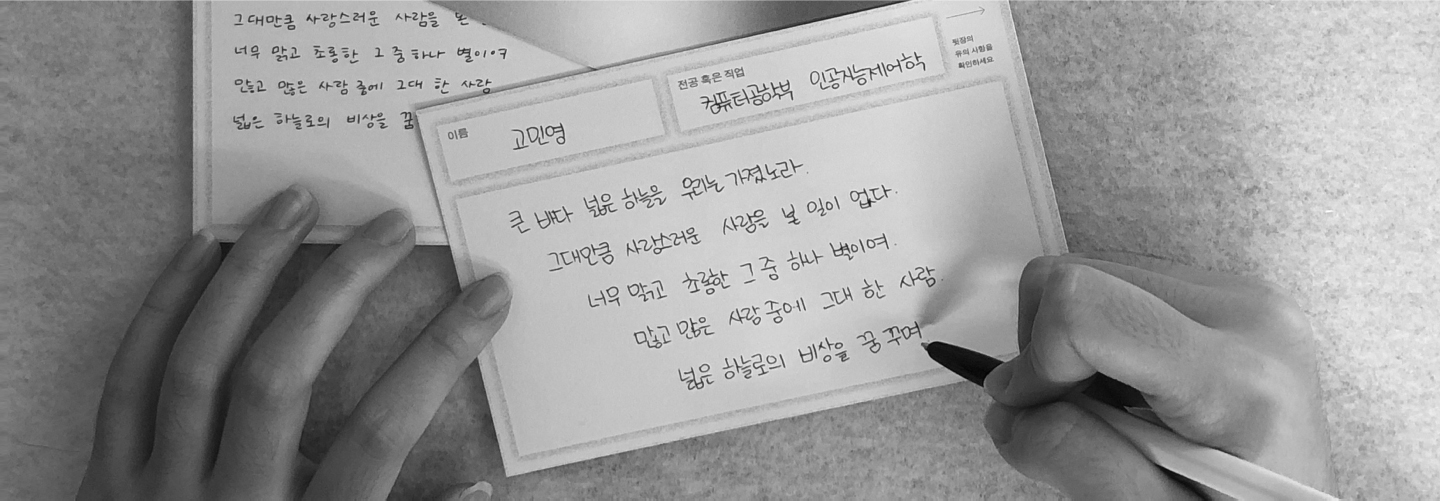 그대만큼 사랑스러운 사람을 본
너무 맑고 초롱한 그 중 하나 별이여
많고 많은 사람 중에 그대 한 사람
넓은 하늘로의 비상을 꿈
이름
고민영
전공 혹은 직업
컴퓨터공학부 인공지능제어학
뒷장의
유의 사항을
확인하세요
큰 바다 넓은 하늘을 우리는 가졌노라.
그대만큼 사랑스러운 사람을 본 일이 없다.
너무 맑고 초롱한 그 중 하나 별이여.
많고 많은 사람 중에 그대 한 사람.
넓은 하늘로의 비상을 꿈 꾸며